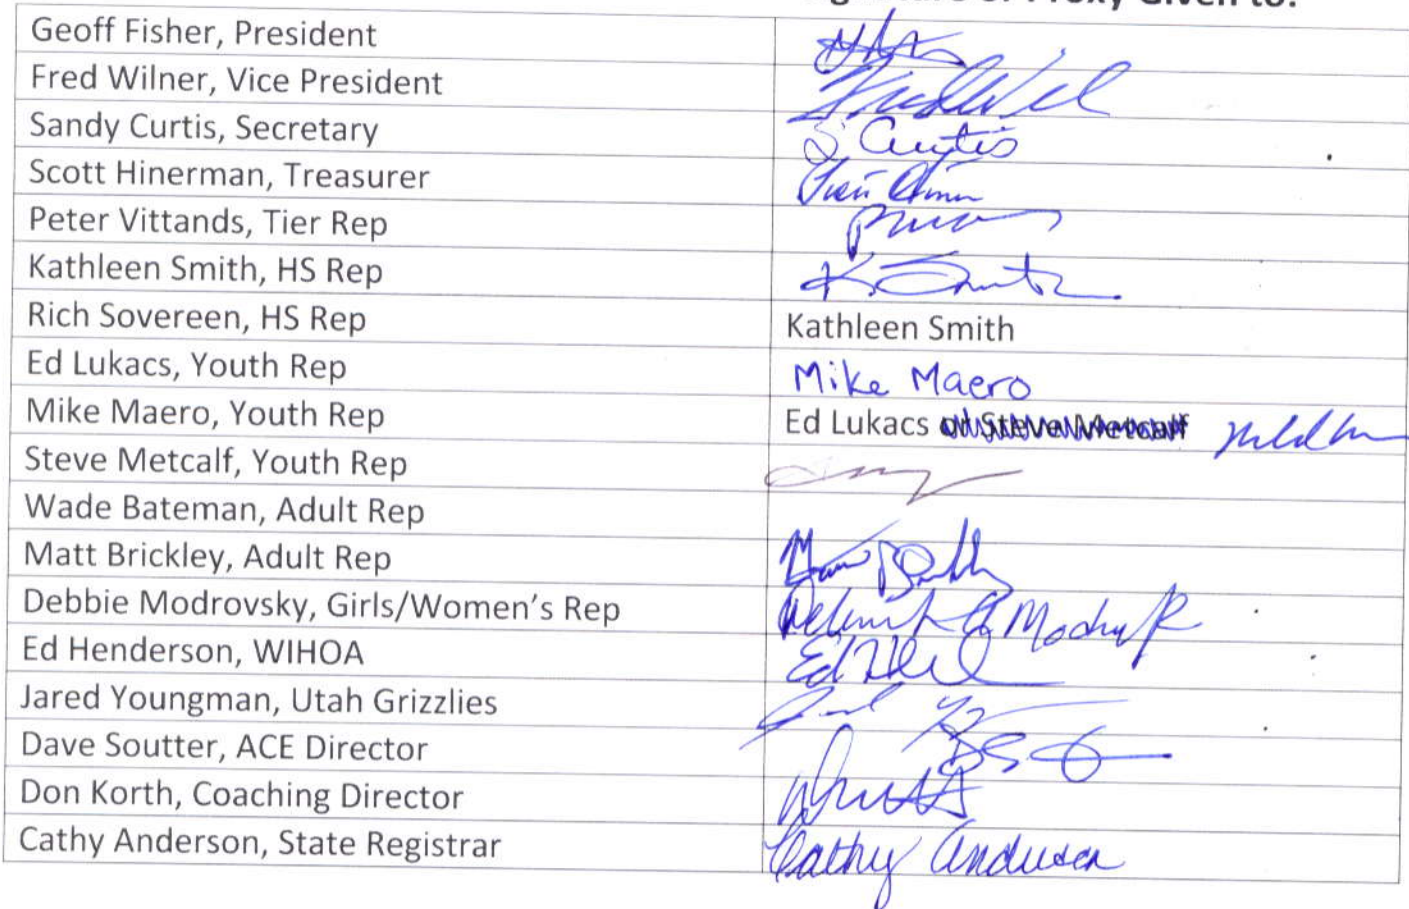 Proxy Given to:
Geoff Fisher, President
Fred Wilner, Vice President
Sandy Curtis, Secretary S Curtis
Scott Hinerman, Treasurer
Peter Vittands, Tier Rep
Kathleen Smith, HS Rep K. Smith
Rich Sovereen, HS Rep Kathleen Smith
Ed Lukacs, Youth Rep Mike Maero
Mike Maero, Youth Rep Ed Lukacs or Steve Metcalf
Steve Metcalf, Youth Rep
Wade Bateman, Adult Rep
Matt Brickley, Adult Rep
Debbie Modrovsky, Girls/Women's Rep
Ed Henderson, WIHOA Ed
Jared Youngman, Utah Grizzlies
Dave Soutter, ACE Director
Don Korth, Coaching Director
Cathy Anderson, State Registrar Cathy Anderson